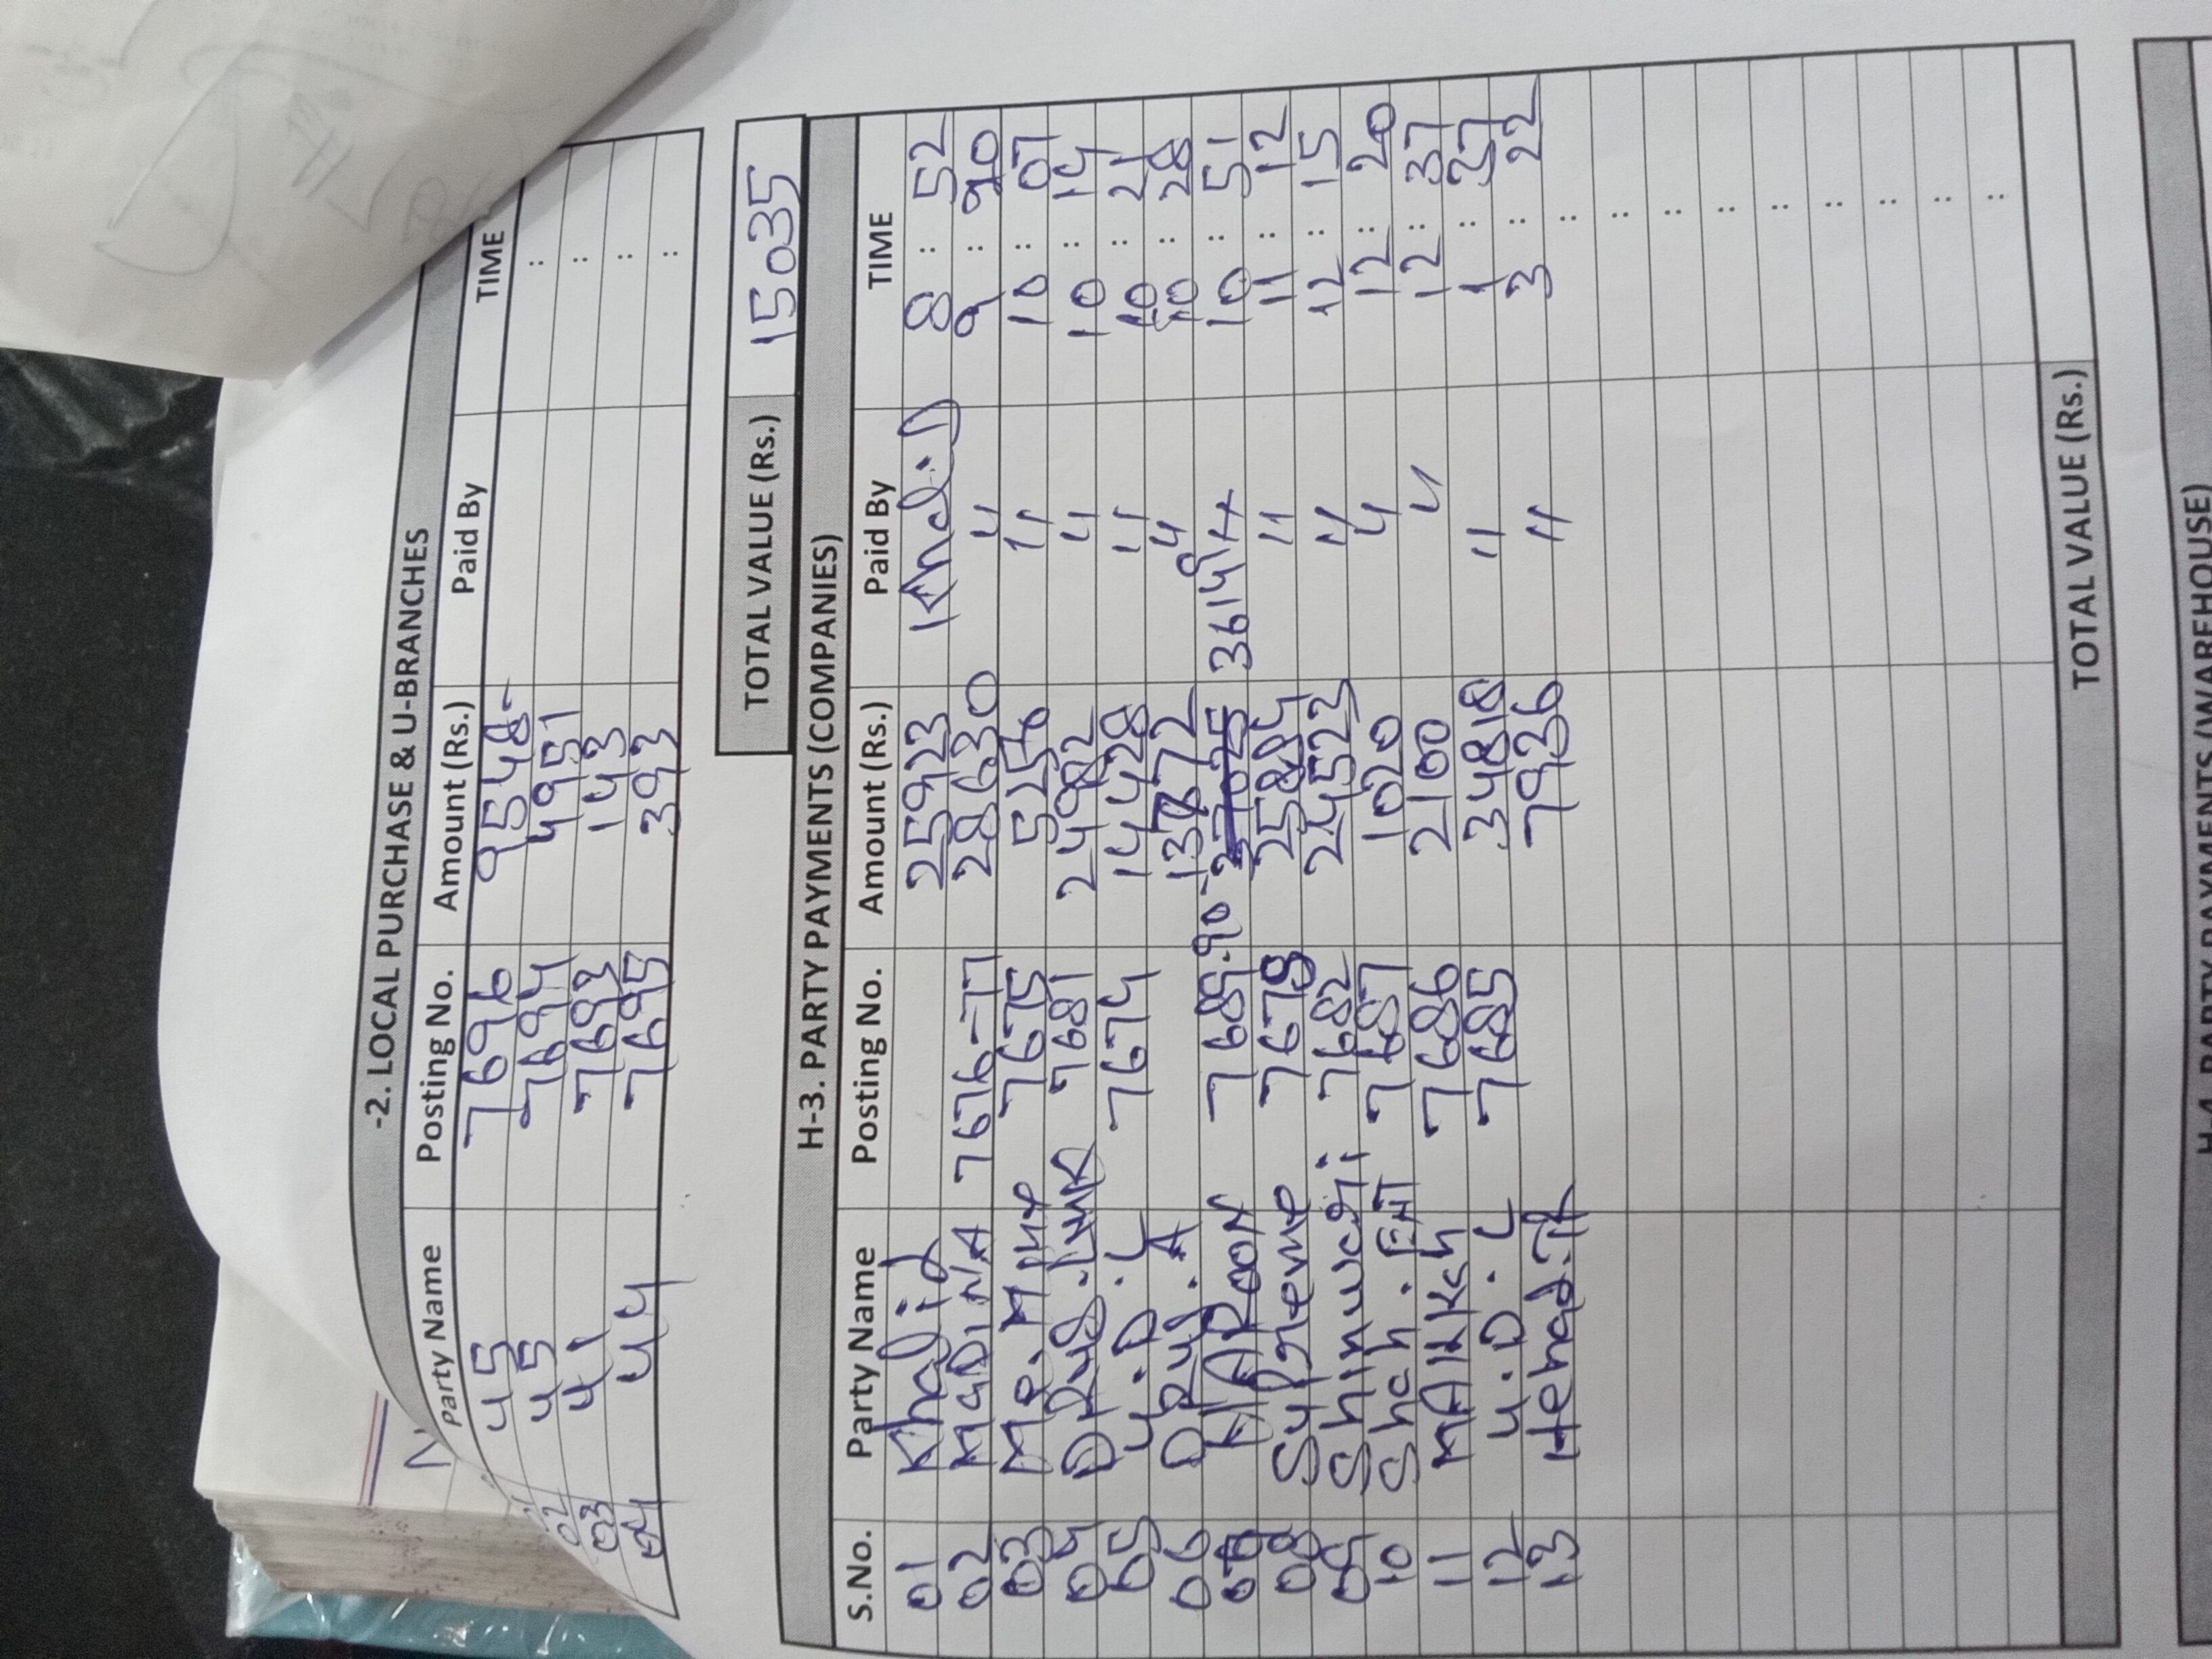 -2. LOCAL PURCHASE & U-BRANCHES
Party Name Posting No. Amount (Rs.) Paid By TIME
45 7696 9548- :
02 45 7694 4951 :
03 41 7693 143 :
04 44 7695 393 :
TOTAL VALUE (Rs.) 15035
H-3. PARTY PAYMENTS (COMPANIES)
S.No. Party Name Posting No. Amount (Rs.) Paid By TIME
01 Khalid 25923 8 : 52
02 MADINA 7676-77 28630 " 9 :
03 7675 " 10 : 07
04 DRug. 7681 24982 " 10 : 14
05 U.D.L 7674 14428 " 10 : 21
06 DRug. A " 10 : 28
07 HAROON 7689-90 10 : 51
08 Supreme 7678 25884 " 11 : 12
09 Shinwari 7682 24522 " 12 : 15
10 Shah. ENT 7687 1020 " 12 : 20
11 7686 2100 " 12 : 37
12 U.D.L 7685 34818 " 1 :
13 7936 " 3 : 22
:
:
:
:
:
:
:
:
:
TOTAL VALUE (Rs.)
H-4. PARTY PAYMENTS (WAREHOUSE)